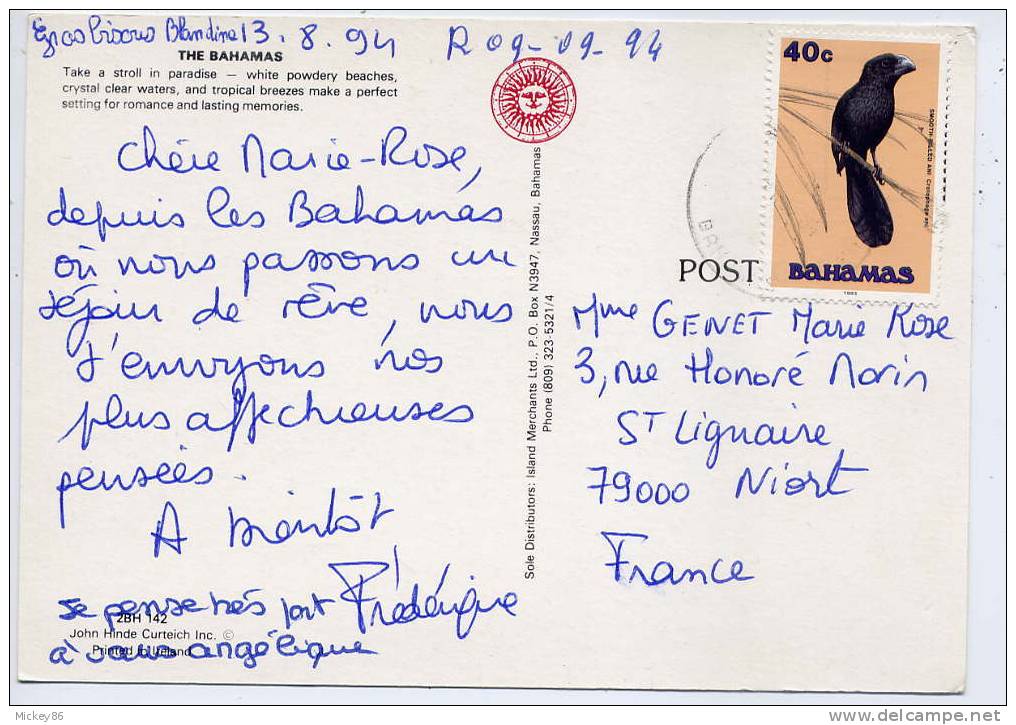 Gros bisous Blandine 13.8.94 R 09-09-94
THE BAHAMAS
Take a stroll in paradise — white powdery beaches,
crystal clear waters, and tropical breezes make a perfect
setting for romance and lasting memories.
Chère Marie-Rose,
depuis les Bahamas
où nous passons un
séjour de rêve, nous
t'envoyons nos
plus affectueuses
pensées.
A bientôt
Frédérique
je pense très fort
à vous angélique
2BH 142
John Hinde Curteich Inc. ©
Printed in Ireland
Sole Distributors: Island Merchants Ltd., P.O. Box N3947, Nassau, Bahamas
Phone (809) 323-5321/4
40c
SMOOTH-BILLED ANI Crotophaga ani
BAHAMAS
POST
Mme GENET Marie Rose
3, rue Honoré Morin
ST Liguaire
79000 Niort
France
Mickey86
www.delcampe.net